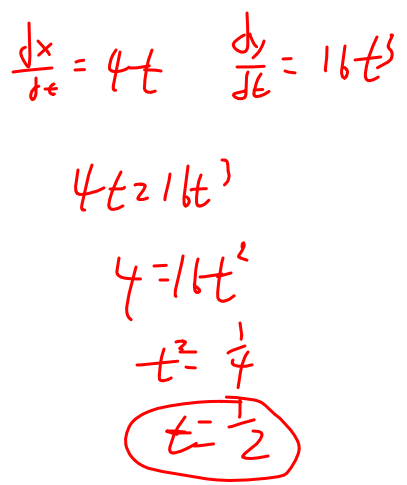 dx/dt = 4t dy/dt = 16t³
4t = 16t³
4 = 16t²
t² = 1/4
t = 1/2